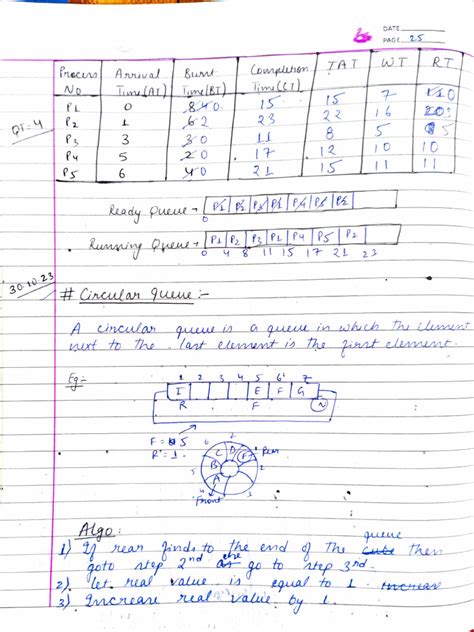 DATE
PAGE 25
QT=4
Process No | Arrival Time(AT) | Burst Time(BT) | Completion Time(CT) | TAT | WT | RT
P1 0 8 4 0 15 15 7 0
P2 1 6 2 23 22 16
P3 3 3 0 11 8 5 5
P4 5 2 0 17 12 10 10
P5 6 4 0 21 15 11 11
Ready Queue → P1 P2 P3 P1 P4 P5 P2
Running Queue → P1 P2 P3 P1 P4 P5 P2
0 4 8 11 15 17 21 23
30.10.23
# Circular queue :-
A circular queue is a queue in which the element
next to the last element is the first element.
Eg:-
1 2 3 4 5 6 7
I E F G
R F N
F = 5
R = 1.
Rear
B C D
A
Front
Algo:
1) If rear finds to the end of the queue then
goto step 2nd else go to step 3rd.
2) let real value is equal to 1. Increas
3) Increase real value by 1.